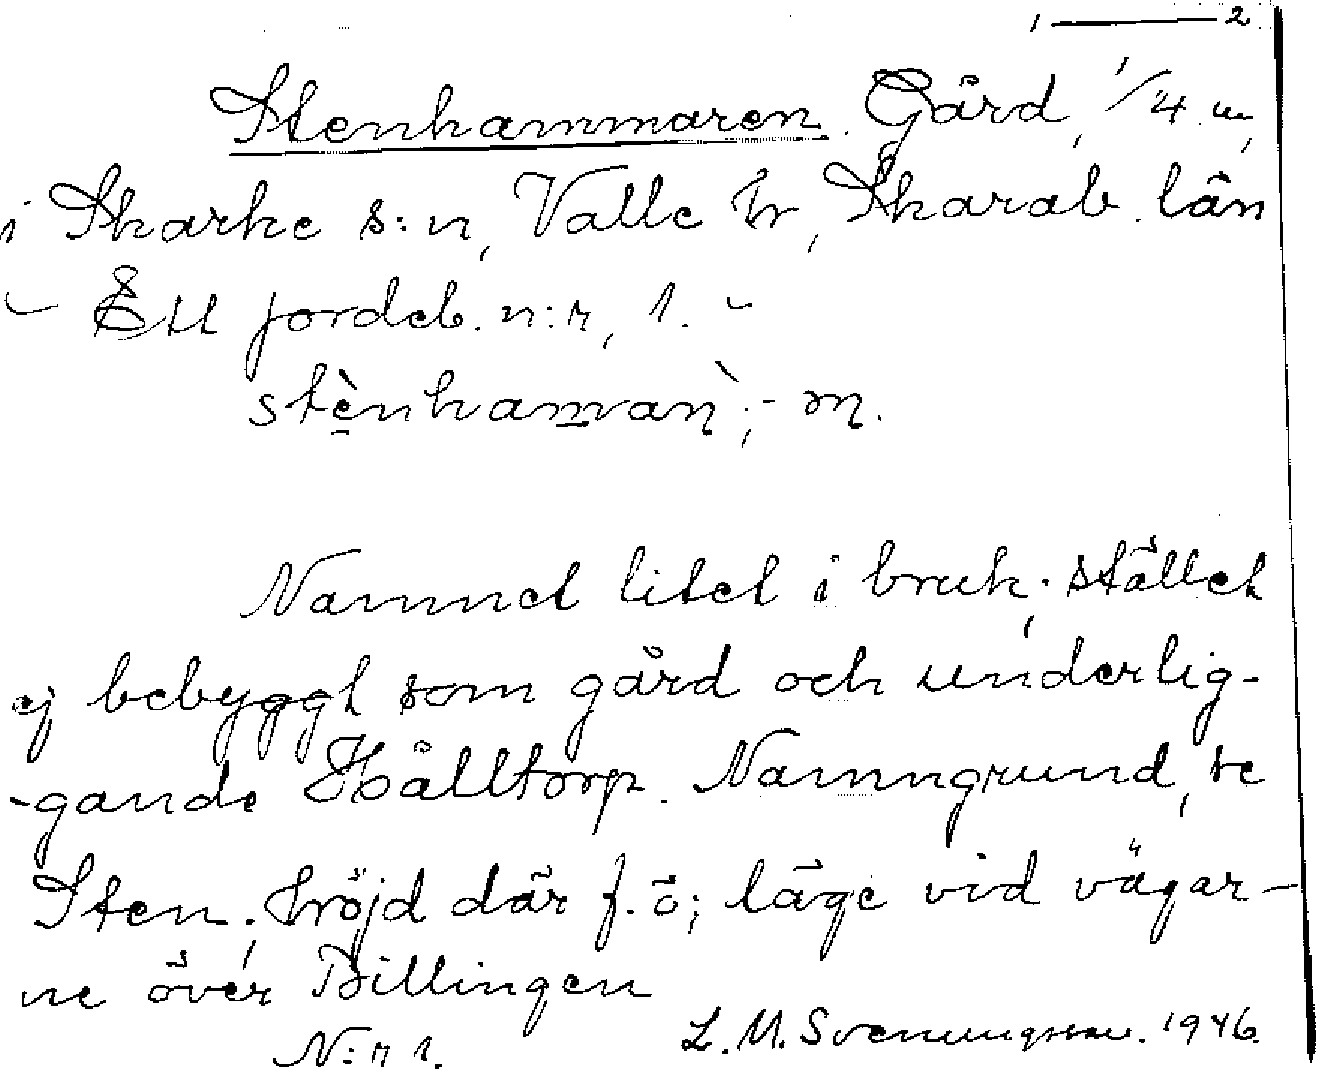 1 — 2
Stenhammaren. Gård, 1/4 m,
i Skarke s:n, Valle hr, Skarab. län
- Ett jordeb. n:r, 1. -
stènhaman`; - m.
Namnet litet i bruk; stället
ej bebyggt som gård och underlig-
-gande Hålltorp. Namngrund, se
Sten; höjd där f. ö; läge vid vägar-
ne över Billingen
N:r 1. L. M. Svenungsson. 1946.